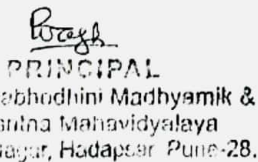 PRINCIPAL
abhodhini Madhyamik &
Mahavidyalaya
Hadapsar Pune-28.